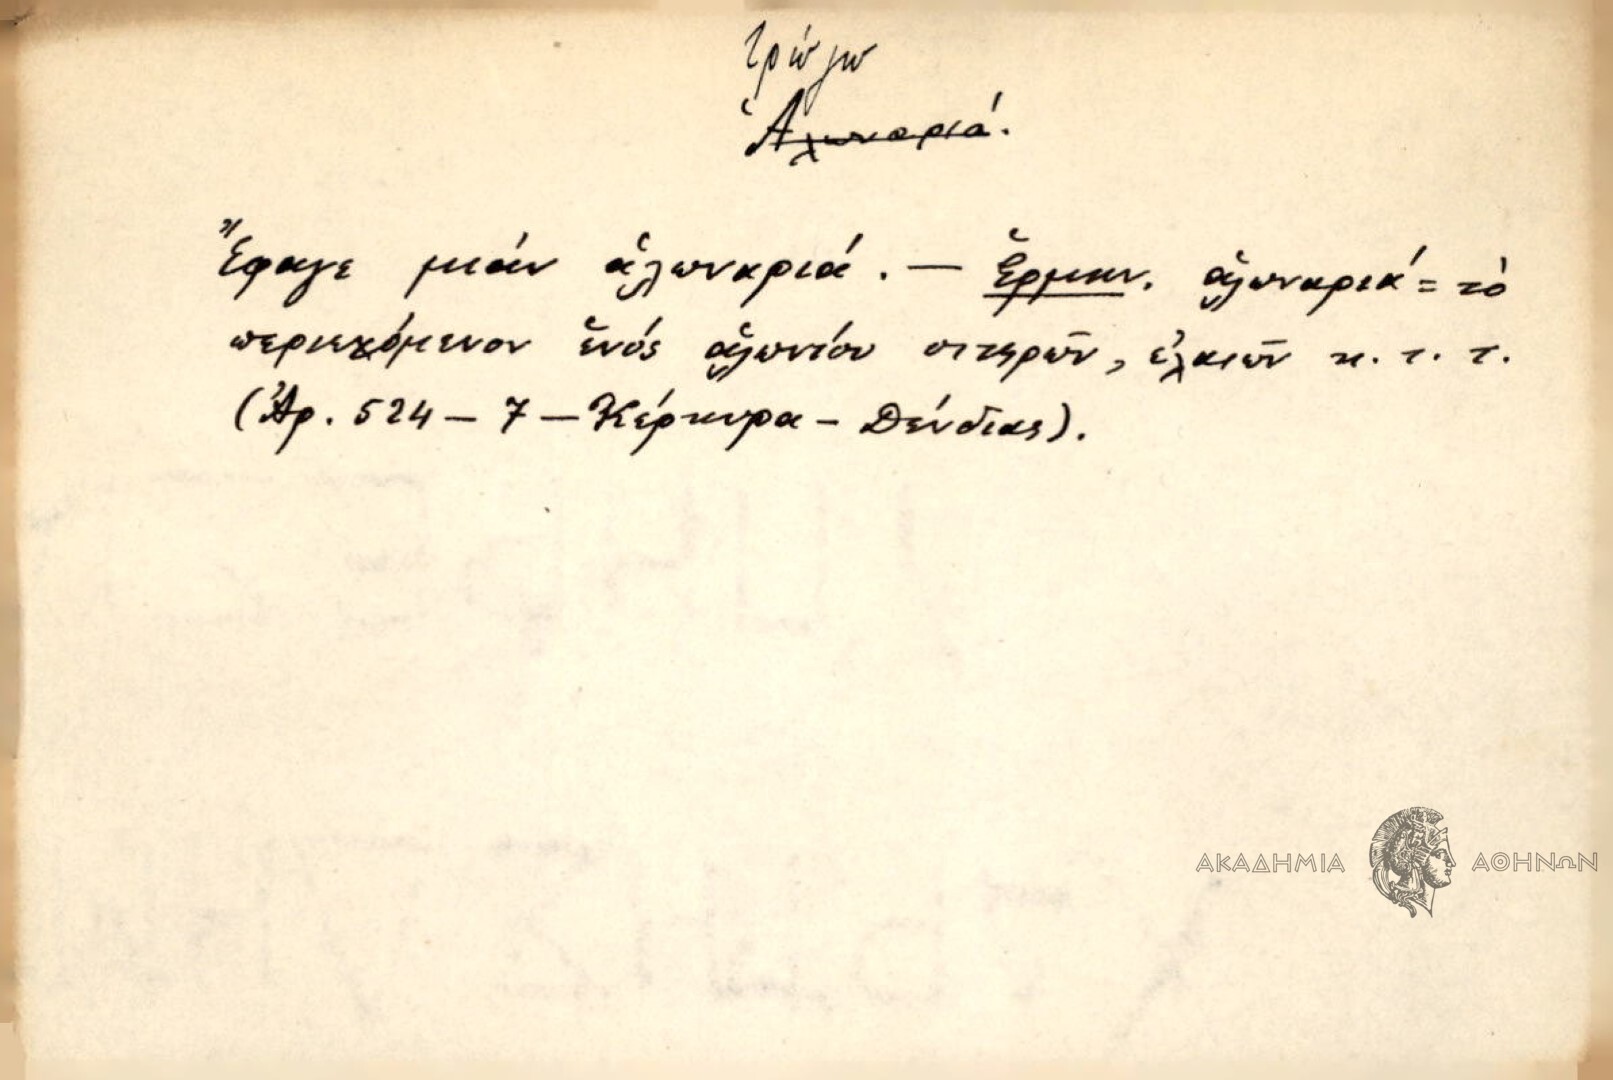 τρώγω
Ἁλωναριά.
Ἔφαγε μιάν ἁλωναριά. — Ἑρμην. ἁλωναριά = τό
περιεχόμενον ἑνός ἁλωνίου σιτηρῶν, ἐλαιῶν κ. τ. τ.
(Ἀρ. 524 — 7 — Κέρκυρα — Δένδιας).
ΑΚΑΔΗΜΙΑ ΑΘΗΝΩΝ